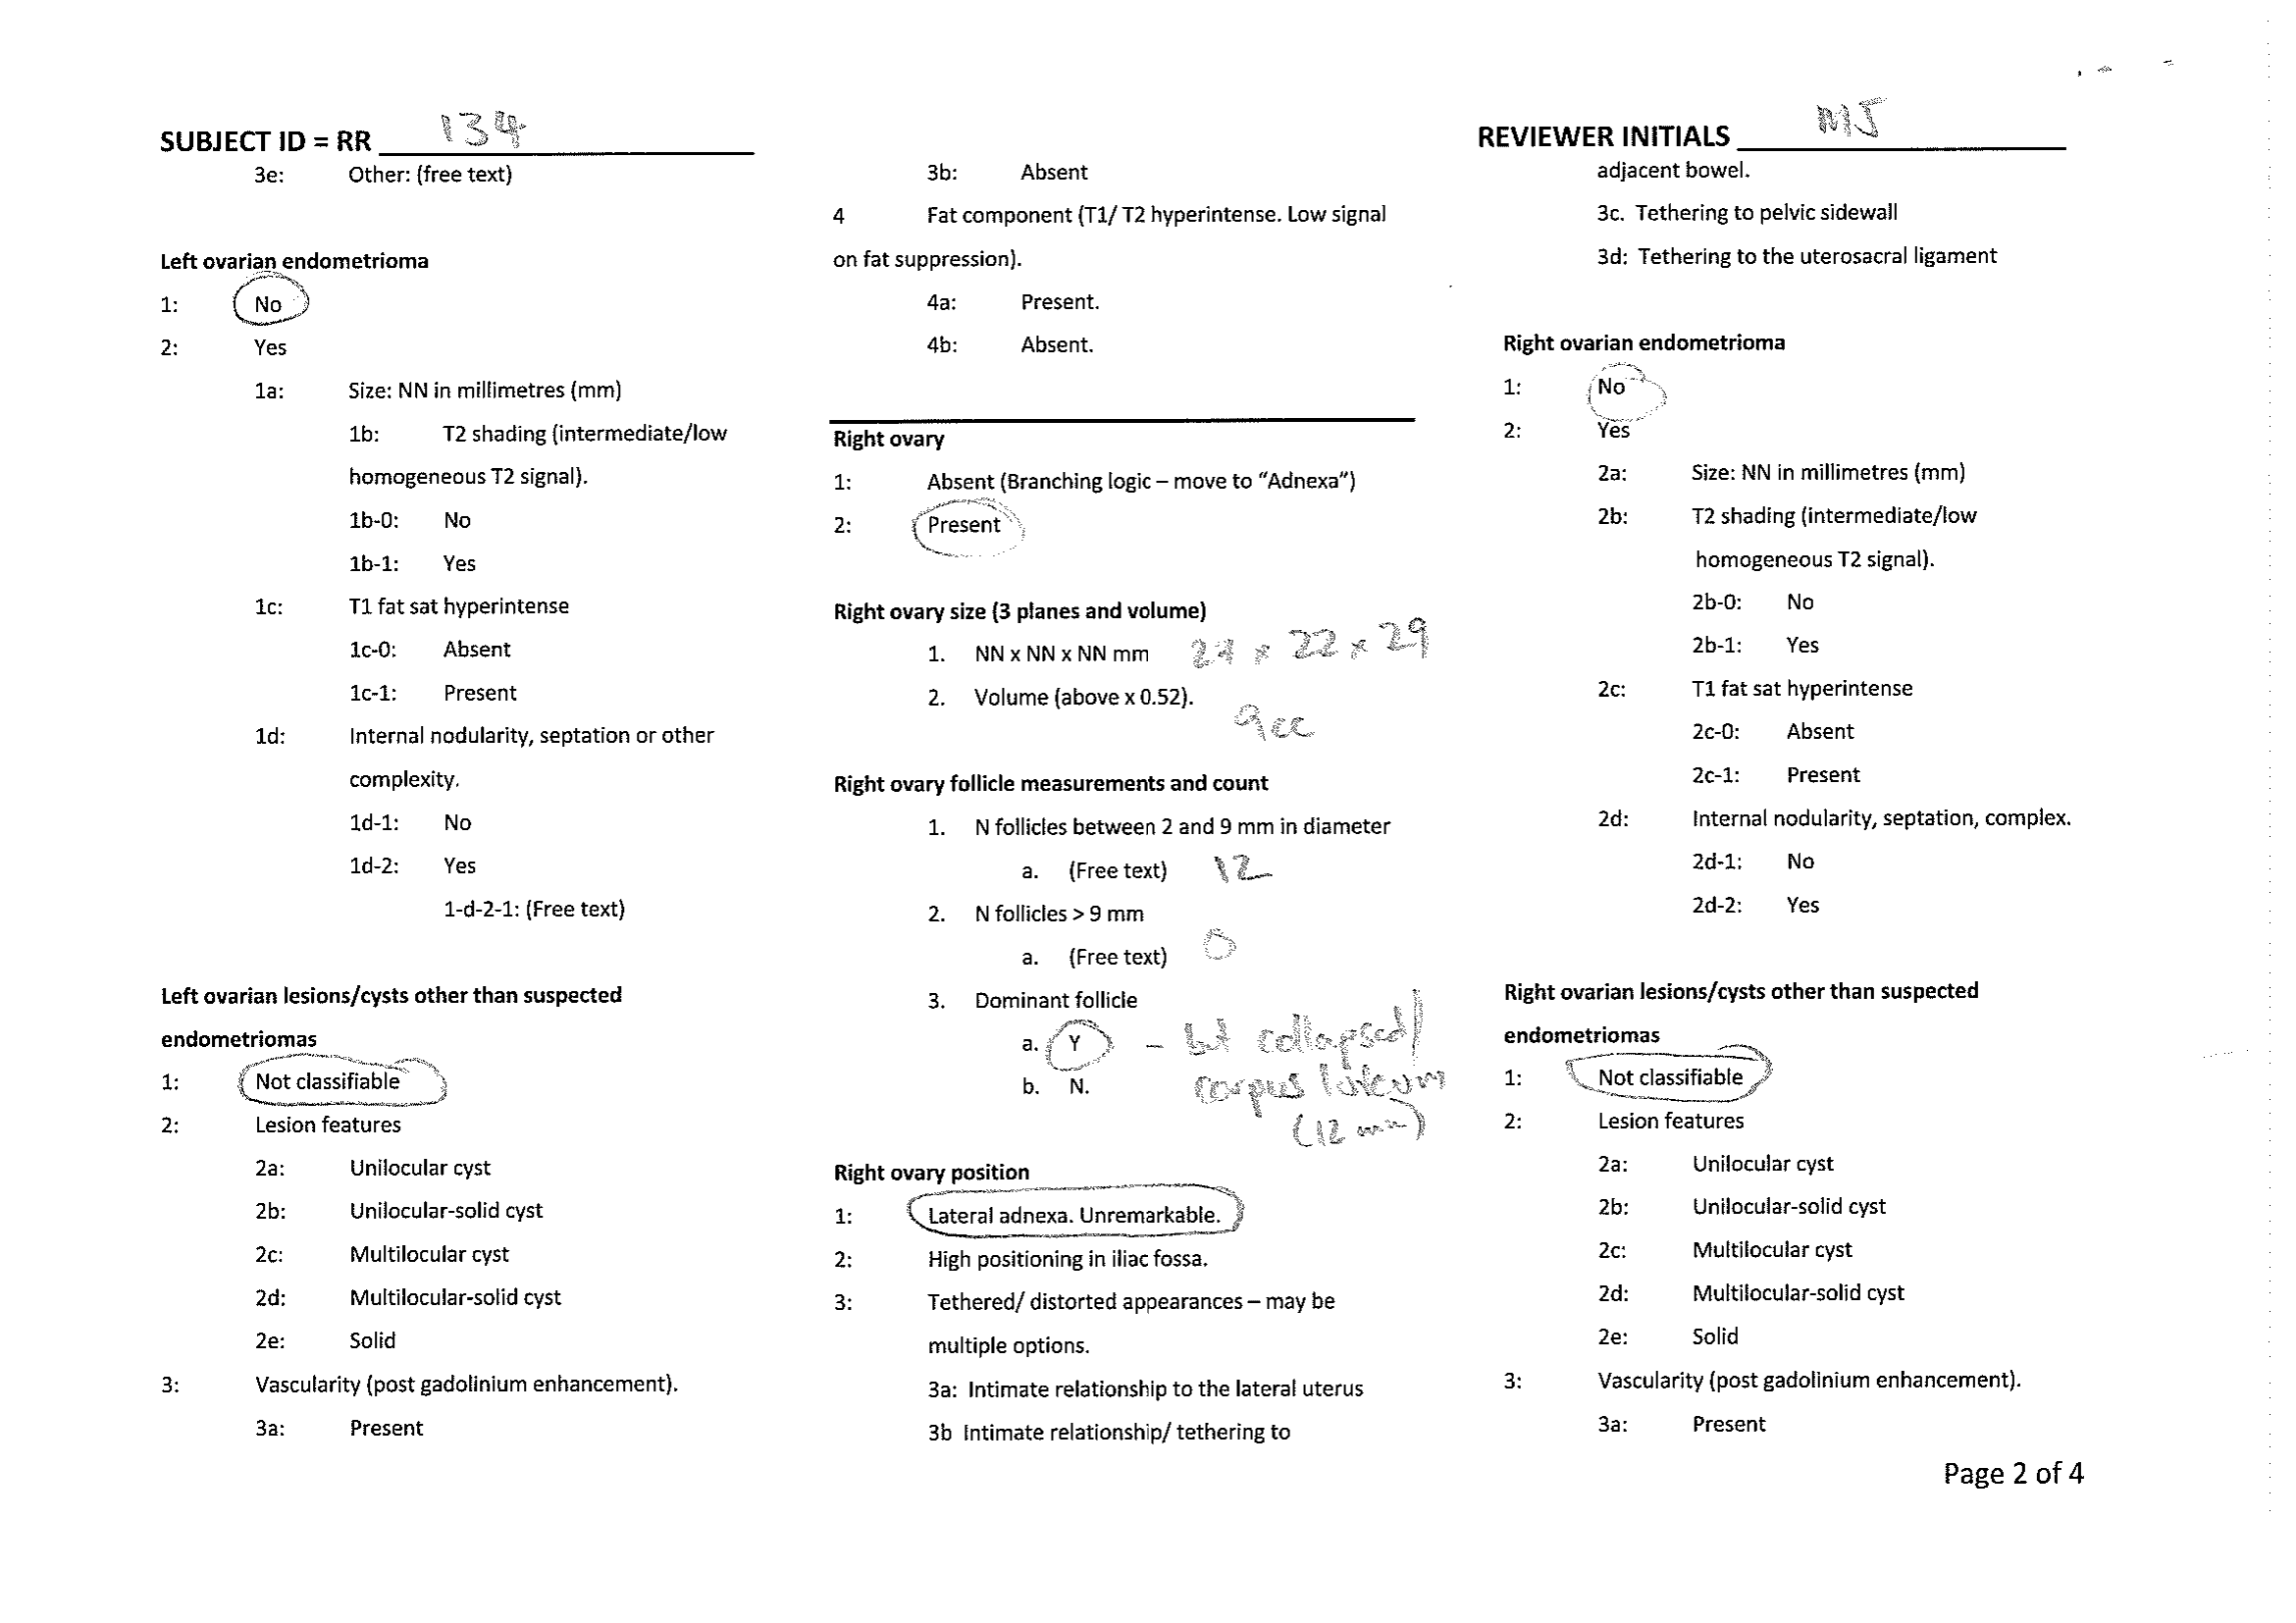 SUBJECT ID = RR 134
3e: Other: (free text)
Left ovarian endometrioma
1: No
2: Yes
1a: Size: NN in millimetres (mm)
1b: T2 shading (intermediate/low
homogeneous T2 signal).
1b-0: No
1b-1: Yes
1c: T1 fat sat hyperintense
1c-0: Absent
1c-1: Present
1d: Internal nodularity, septation or other
complexity.
1d-1: No
1d-2: Yes
1-d-2-1: (Free text)
Left ovarian lesions/cysts other than suspected
endometriomas
1: Not classifiable
2: Lesion features
2a: Unilocular cyst
2b: Unilocular-solid cyst
2c: Multilocular cyst
2d: Multilocular-solid cyst
2e: Solid
3: Vascularity (post gadolinium enhancement).
3a: Present
3b: Absent
4 Fat component (T1/ T2 hyperintense. Low signal
on fat suppression).
4a: Present.
4b: Absent.
Right ovary
1: Absent (Branching logic – move to “Adnexa”)
2: Present
Right ovary size (3 planes and volume)
1. NN x NN x NN mm x 22 x 29
2. Volume (above x 0.52).
9cc
Right ovary follicle measurements and count
1. N follicles between 2 and 9 mm in diameter
a. (Free text) 12
2. N follicles > 9 mm
a. (Free text) 0
3. Dominant follicle
a. Y – but collapsed/
b. N. corpus luteum
(12 mm)
Right ovary position
1: Lateral adnexa. Unremarkable.
2: High positioning in iliac fossa.
3: Tethered/ distorted appearances – may be
multiple options.
3a: Intimate relationship to the lateral uterus
3b Intimate relationship/ tethering to
REVIEWER INITIALS MJ
adjacent bowel.
3c. Tethering to pelvic sidewall
3d: Tethering to the uterosacral ligament
Right ovarian endometrioma
1: No
2: Yes
2a: Size: NN in millimetres (mm)
2b: T2 shading (intermediate/low
homogeneous T2 signal).
2b-0: No
2b-1: Yes
2c: T1 fat sat hyperintense
2c-0: Absent
2c-1: Present
2d: Internal nodularity, septation, complex.
2d-1: No
2d-2: Yes
Right ovarian lesions/cysts other than suspected
endometriomas
1: Not classifiable
2: Lesion features
2a: Unilocular cyst
2b: Unilocular-solid cyst
2c: Multilocular cyst
2d: Multilocular-solid cyst
2e: Solid
3: Vascularity (post gadolinium enhancement).
3a: Present
Page 2 of 4